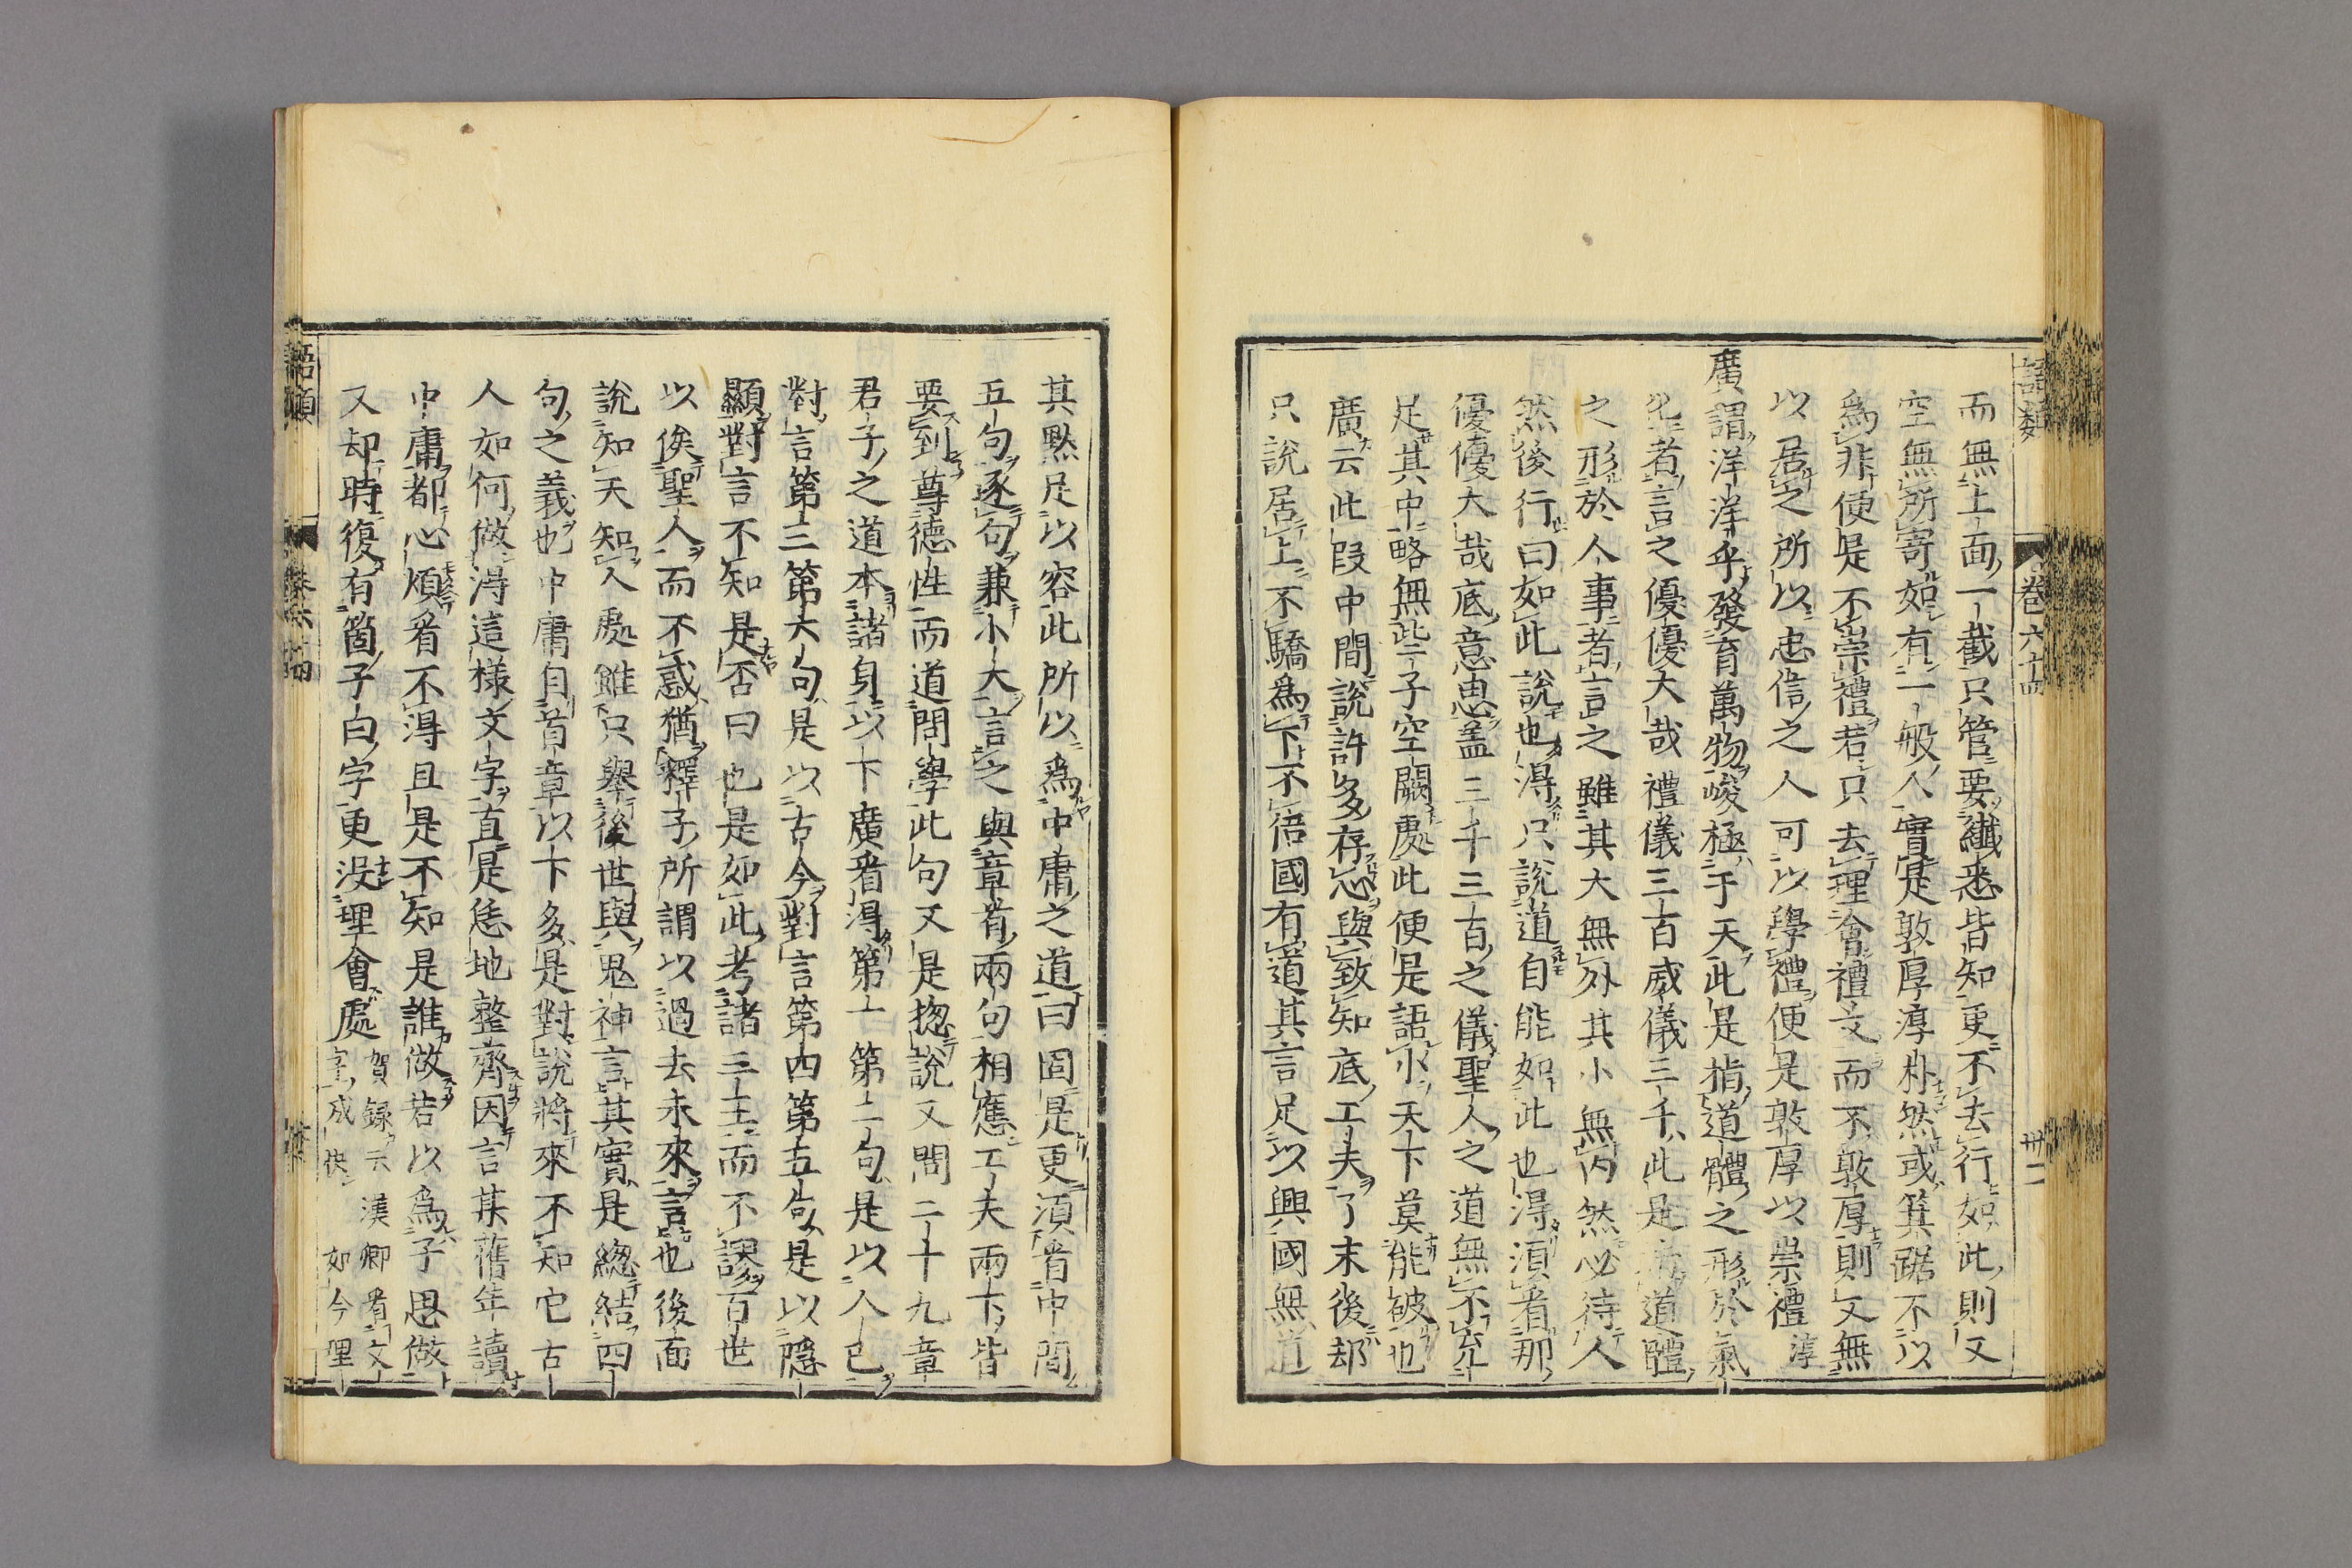 語類
卷六十四
卅二
而無上面一截只管要纖悉皆知更不去行如此則又
空無所寄如有一般人實是敦厚淳朴然或箕踞不以
爲非便是不崇禮若只去理會禮文而不敦厚則又無
以居之所以忠信之人可以學禮便是敦厚以崇禮淳
廣謂洋洋乎發育萬物峻極于天此是指道體之形於氣
化者言之優優大哉禮儀三百威儀三千此是指道體
之形於人事者言之雖其大無外其小無內然必待人
然後行曰如此說也得只說道自能如此也得須看那
優優大哉底意思蓋三千三百之儀聖人之道無不充
足其中略無些子空闕處此便是語小天下莫能破也
廣云此段中間說許多存心與致知底工夫了末後却
只說居上不驕爲下不倍國有道其言足以興國無道
其默足以容此所以爲中庸之道曰固是更須看中間
五句逐句兼小大言之與章首兩句相應工夫兩下皆
要到尊德性而道問學此句又是揔說又問二十九章
君子之道本諸身以下廣看得第一第二句是以人己
對言第三第六句是以古今對言第四第五句是以隱
顯對言不知是否曰也是如此考諸三王而不謬百世
以俟聖人而不惑猶釋子所謂以過去未來言也後面
說知天知人處雖只舉後世與鬼神言其實是總結四
句之義也中庸自首章以下多是對說將來不知它古
人如何做得這樣文字直是恁地整齊因言某舊年讀
中庸都心煩看不得且是不知是誰做若以爲子思做
又却時復有箇子曰字更沒理會處賀錄云漢卿看文
字忒快如今理
語類
卷六十四